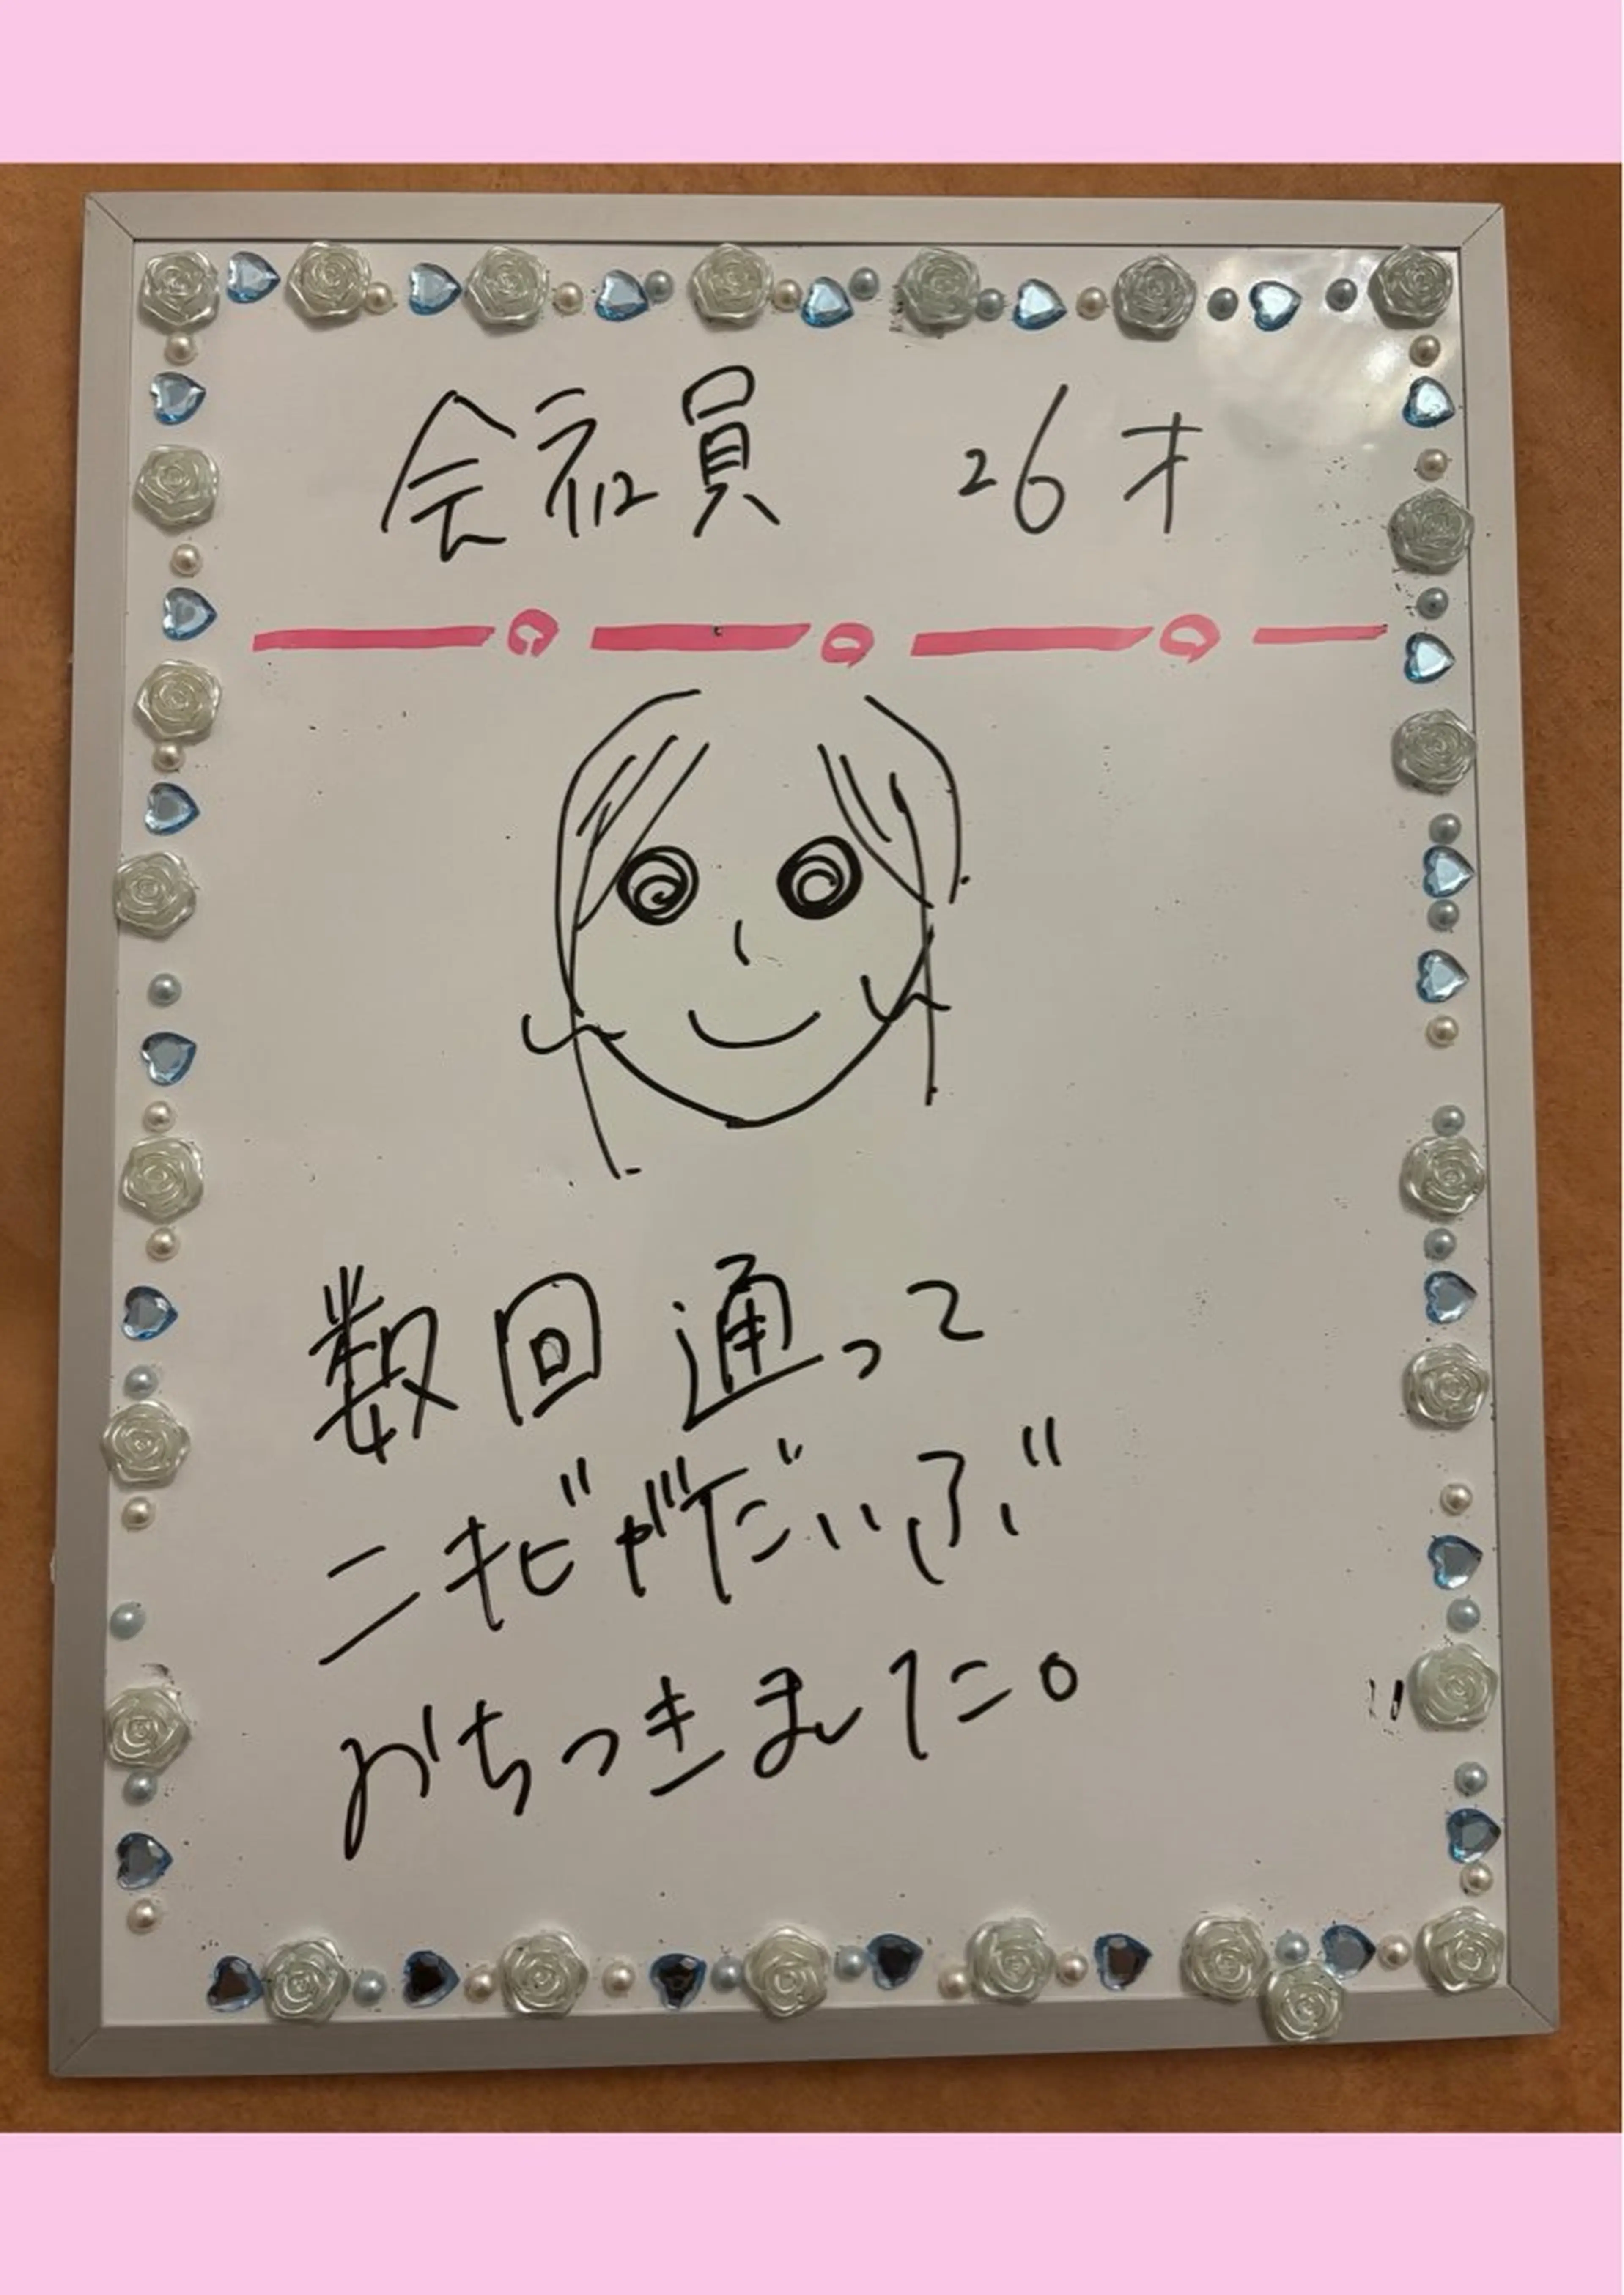 会社員 26才
数回通って
ニキビがだいぶ
おちつきました。